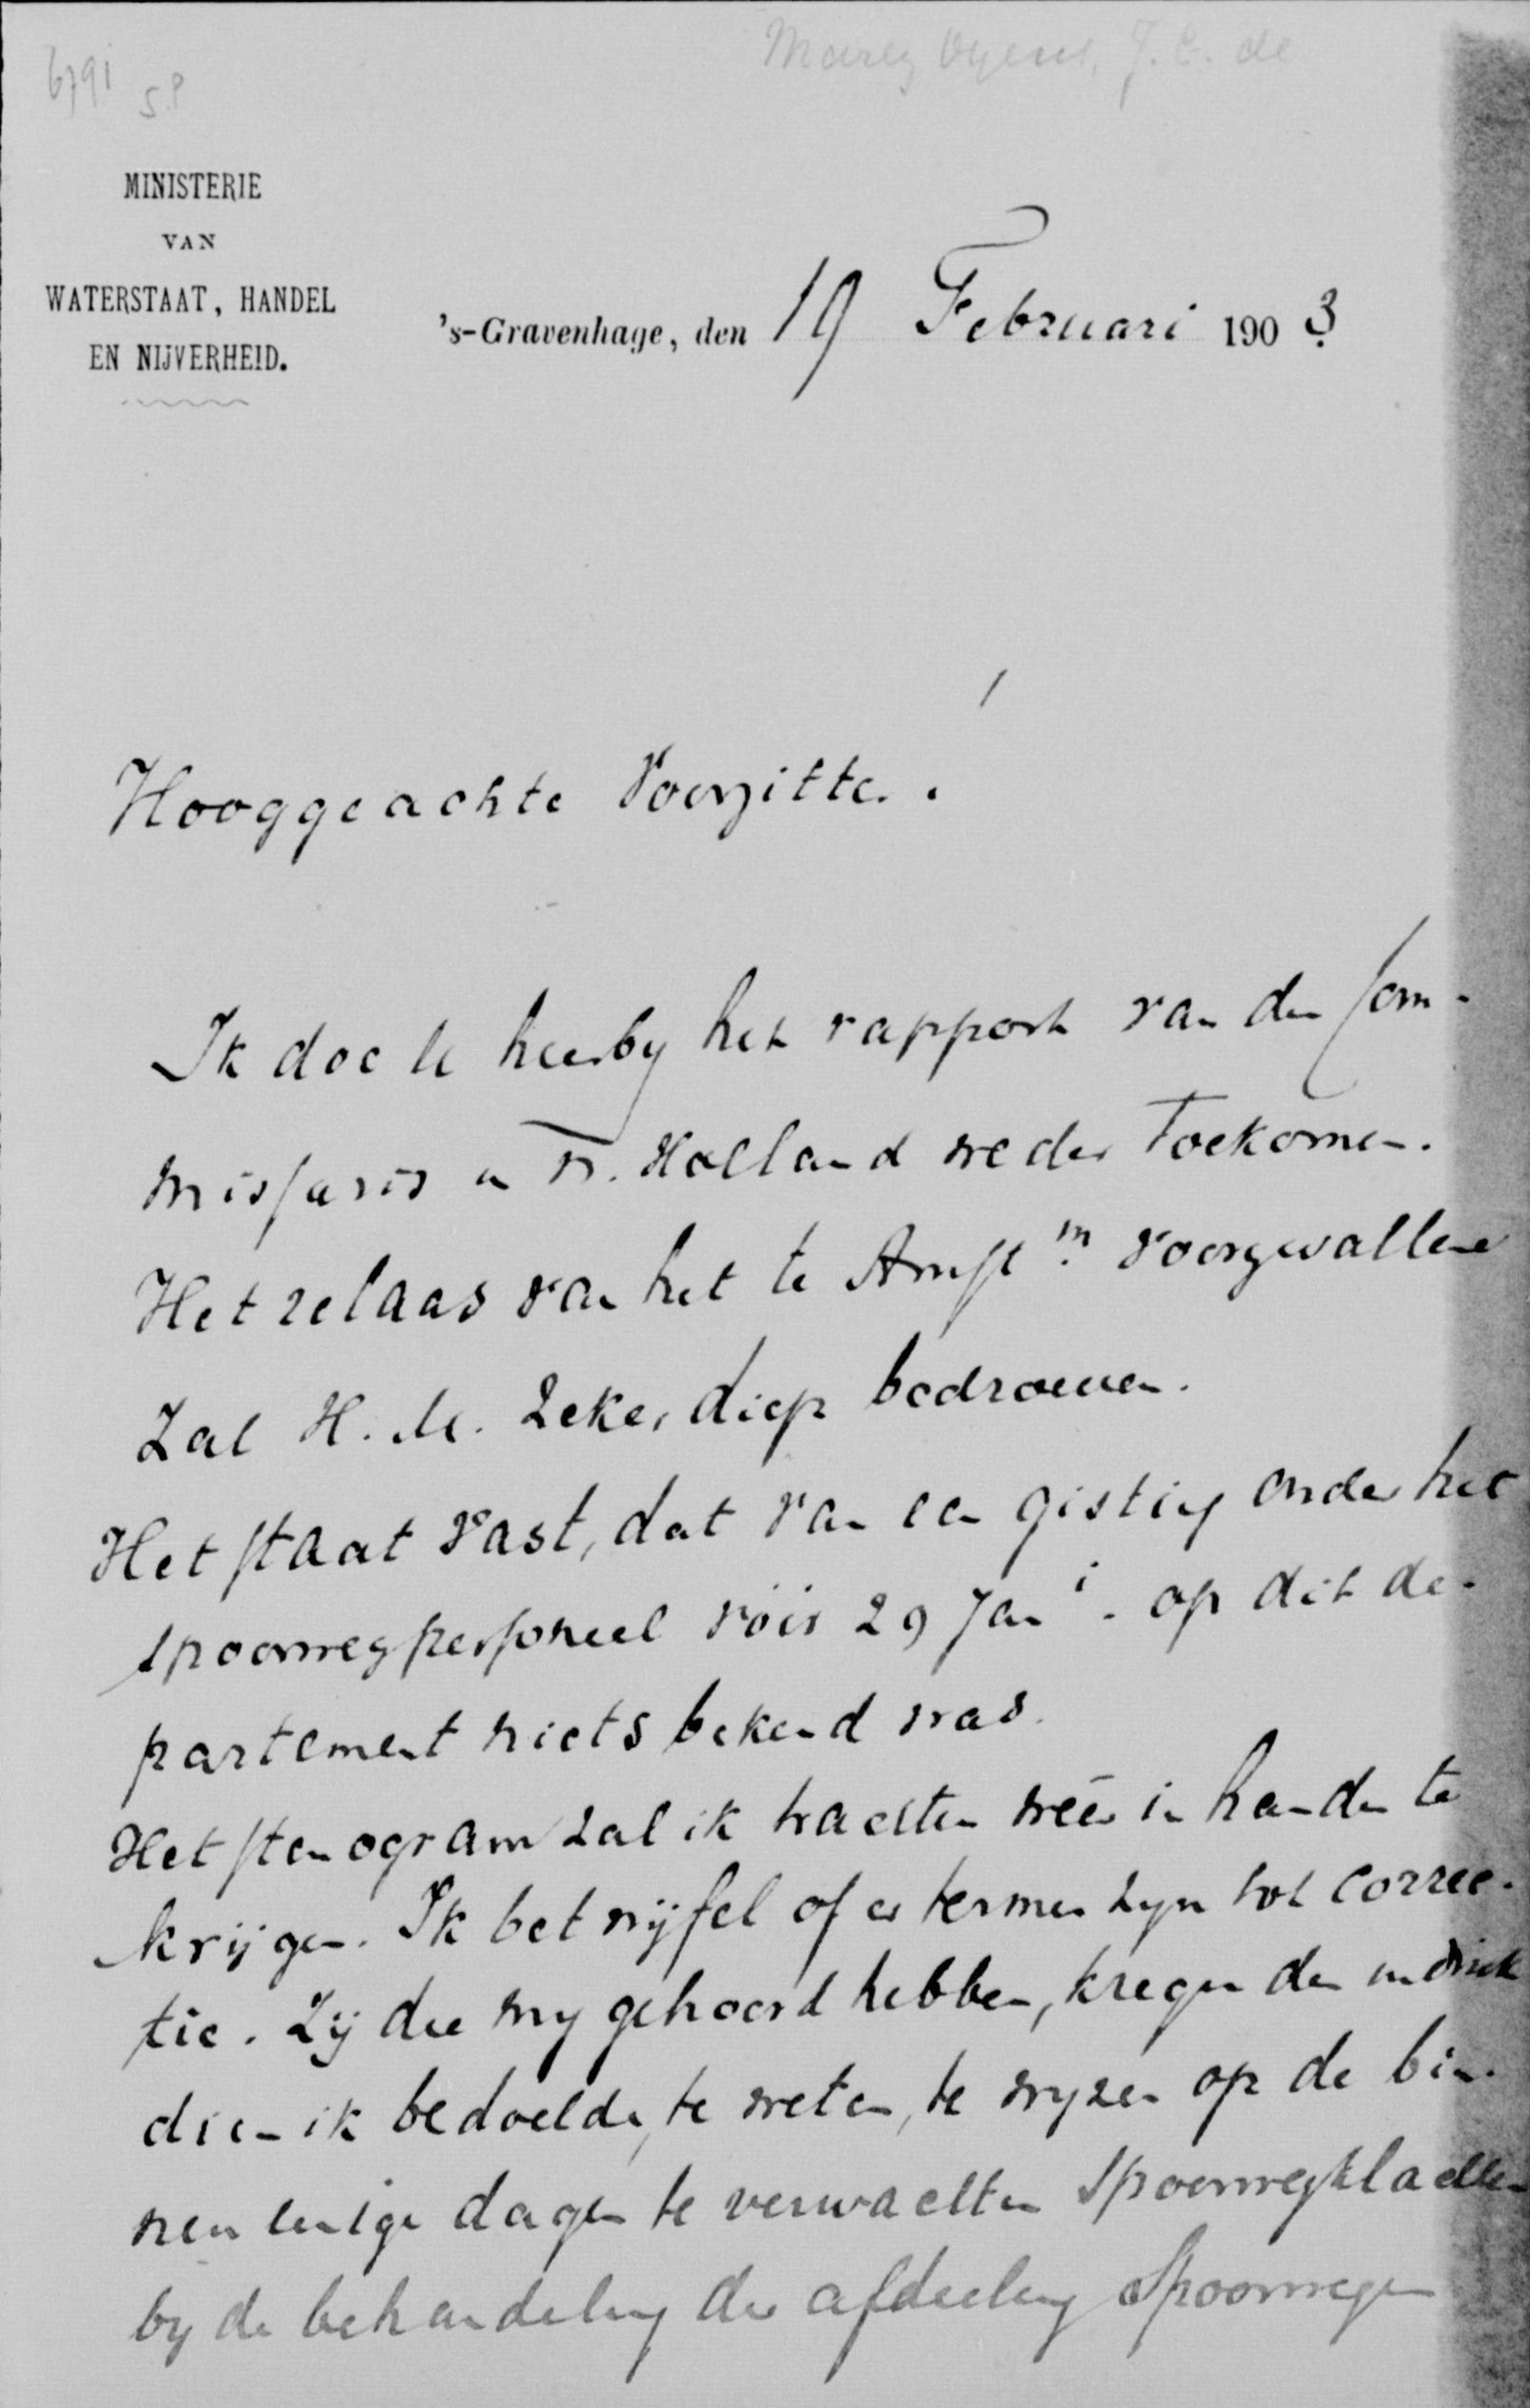 Marez Oyens, J.C. de
6791 S.P
MINISTERIE
VAN
WATERSTAAT, HANDEL
EN NIJVERHEID.
's-Gravenhage, den 19 Februari 1903
Hooggeachte Voorzitter.
Ik doe U hierby het rapport van den Com-
missaris in N. Holland weder toekomen.
Het relaas van het te Amstm. voorgevallene
zal H. M. zeker diep bedroeven.
Het staat vast, dat van een gisting onder het
spoorwegpersoneel vóór 29 Jani. op dit de-
partement niets bekend was.
Het stenogram zal ik trachten weêr in handen te
krijgen. Ik betwijfel of er termen zyn tot correc-
tie. Zij die my gehoord hebben, kregen den indruk
dien ik bedoelde, te weten, te wyzen op de bin-
nen enige dagen te verwachten spoorwegklachten
by de behandeling der afdeeling Spoorwegen